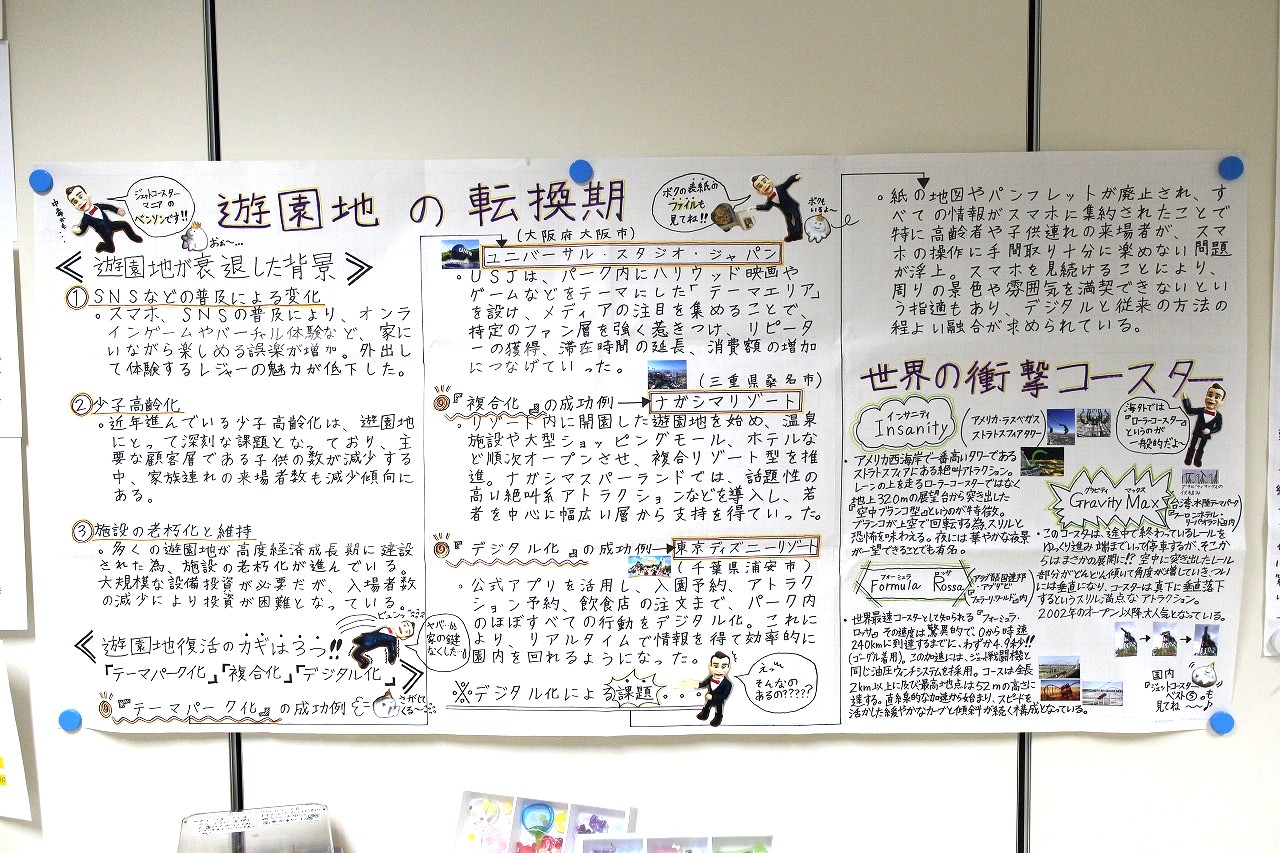 遊園地の転換期
ジェットコースター
マニアの
ベンソンです!!
おぉ〜…
ボクの表紙の
ファイルも
見てね!!
ボクも
いるよ〜
≪遊園地が衰退した背景≫
①SNSなどの普及による変化
。スマホ、SNSの普及により、オンラ
インゲームやバーチャル体験など、家に
いながら楽しめる娯楽が増加。外出し
て体験するレジャーの魅力が低下した。
②少子高齢化
。近年進んでいる少子高齢化は、遊園地
にとって深刻な課題となっており、主
要な顧客層である子供の数が減少する
中、家族連れの来場者数も減少傾向に
ある。
③施設の老朽化と維持
。多くの遊園地が高度経済成長期に建設
された為、施設の老朽化が進んでいる。
大規模な設備投資が必要だが、入場者数
の減少により投資が困難となっている。
≪遊園地復活のカギは3つ!!
『テーマパーク化』『複合化』『デジタル化』≫
ヤバい!
家の鍵
なくした…
『テーマパーク化』の成功例
(大阪府大阪市)
ユニバーサル・スタジオ・ジャパン
。USJは、パーク内にハリウッド映画や
ゲームなどをテーマにした「テーマエリア」
を設け、メディアの注目を集めることで、
特定のファン層を強く惹きつけ、リピータ
ーの獲得、滞在時間の延長、消費額の増加
につなげていった。
(三重県桑名市)
◎『複合化』の成功例→ナガシマリゾート
。リゾート内に開園した遊園地を始め、温泉
施設や大型ショッピングモール、ホテルな
ど順次オープンさせ、複合リゾート型を推
進。ナガシマスパーランドでは、話題性の
高い絶叫系アトラクションなどを導入し、若
者を中心に幅広い層から支持を得ていった。
◎『デジタル化』の成功例→東京ディズニーリゾート
(千葉県浦安市)
。公式アプリを活用し、入園予約、アトラク
ション予約、飲食店の注文まで、パーク内
のほぼすべての行動をデジタル化。これに
より、リアルタイムで情報を得て効率的に
園内を回れるようになった。
※デジタル化による課題…
えっ
そんなの
あるの?????
。紙の地図やパンフレットが廃止され、す
べての情報がスマホに集約されたことで
特に高齢者や子供連れの来場者が、スマ
ホの操作に手間取り十分に楽しめない問題
が浮上。スマホを見続けることにより、
周りの景色や雰囲気を満喫できないとい
う指適もあり、デジタルと従来の方法の
程よい融合が求められている。
世界の衝撃コースター
インサニティ
Insanity
(アメリカ・ラスベガス
ストラトスフィアタワー)
海外では
『ローラーコースター』
というのが
一般的だよ
・アメリカ西海岸で一番高いタワーである
ストラトスフィアにある絶叫アトラクション。
レーンの上を走るローラーコースターではなく
地上320mの展望台から突き出した
『空中ブランコ型』というのが特徴。
ブランコが上空で回転する為、スリルと
恐怖を味わえる。夜には華やかな夜景
が一望できることでも有名。
グラビティ マックス
Gravity Max
・このコースターは、途中で終わっているレールを
ゆっくり進み端までいって停車するが、そこか
らはまさかの展開に!! 空中に突き出したレール
部分がどんどん傾いて角度が増していき、つい
には垂直になり、コースターは真下に垂直落下
するというスリル満点なアトラクション。
2002年のオープン以降大人気となっている。
フォーミュラ ロッサ
Formula Rossa
アラブ首長国連邦
・アブダビ
フェラーリワールド内
・世界最速コースターとして知られる『フォーミュラ・
ロッサ』。その速度は驚異的で、0から時速
240kmに到達するまでに、わずか4.9秒!!
(ゴーグル着用)。この加速には、ジェット戦闘機と
同じ油圧ウンチシステムを採用。コースは全長
2km以上に及び最高地点は52mの高さに
達する。直線的な加速から始まり、スピードを
活かした緩やかなカーブと傾斜が続く構成となっている。
国内
『ジェットコースター
ベスト⑤』も
見てね
〜〜♪